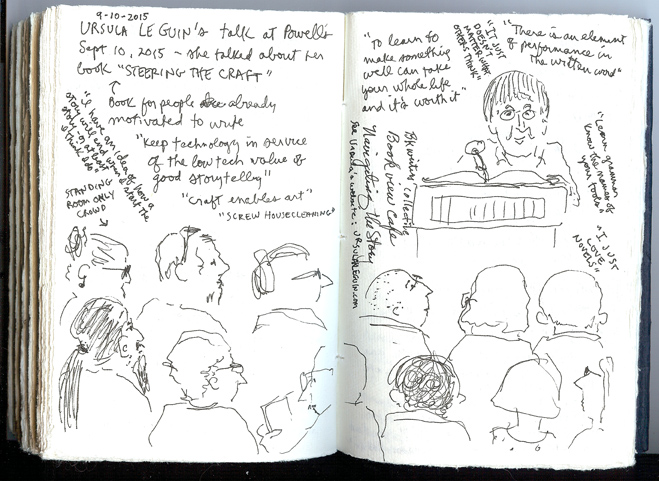 9-10-2015
URSULA LE GUIN's talk at Powell's
Sept 10, 2015 – she talked about her
book "STEERING THE CRAFT"
Book for people already
motivated to write
"Keep technology in service
of the low tech value of
good storytelling"
"Craft enables art"
"SCREW HOUSECLEANING"
"I have an idea of how a
story
STANDING
ROOM ONLY
CROWD
"To learn to
make something
well can take
your whole life
and it's worth it"
"IT JUST
DOESN'T
MATTER WHAT
OTHERS THINK"
"There is an element
of performance in
the written word"
"Learn grammar
know the names of
your tools"
"I JUST
LOVE
NOVELS"
Book View Cafe
Navigating the Story
See Ursula's website: URSULAKLEGUIN.COM